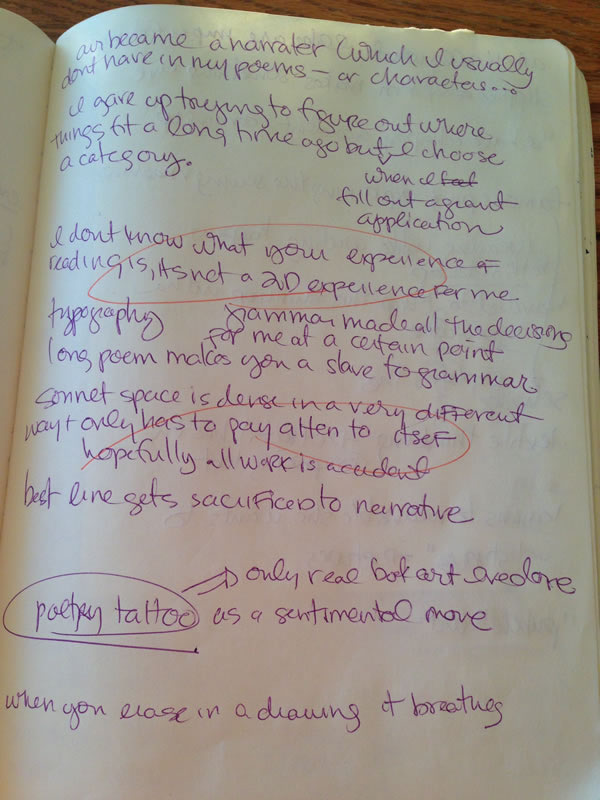 air became a narrater (which I usually
dont have in my poems — or characters...
I gave up trying to figure out where
things fit a long time ago but I choose
a category.
when I feel
fill out a grant
application
I dont know what your experience of
reading is, its not a 2D experience for me
typography grammar made all the decisions
for me at a certain point
long poem makes you a slave to grammar
sonnet space is dense in a very different
way + only has to pay atten to itsef
hopefully all work is accident
best line gets sacrificed to narrative
only real book art Ive done
poetry tattoo as a sentimental move
when you erase in a drawing it breathes